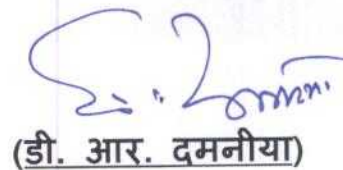 (डी. आर. दमनीया)